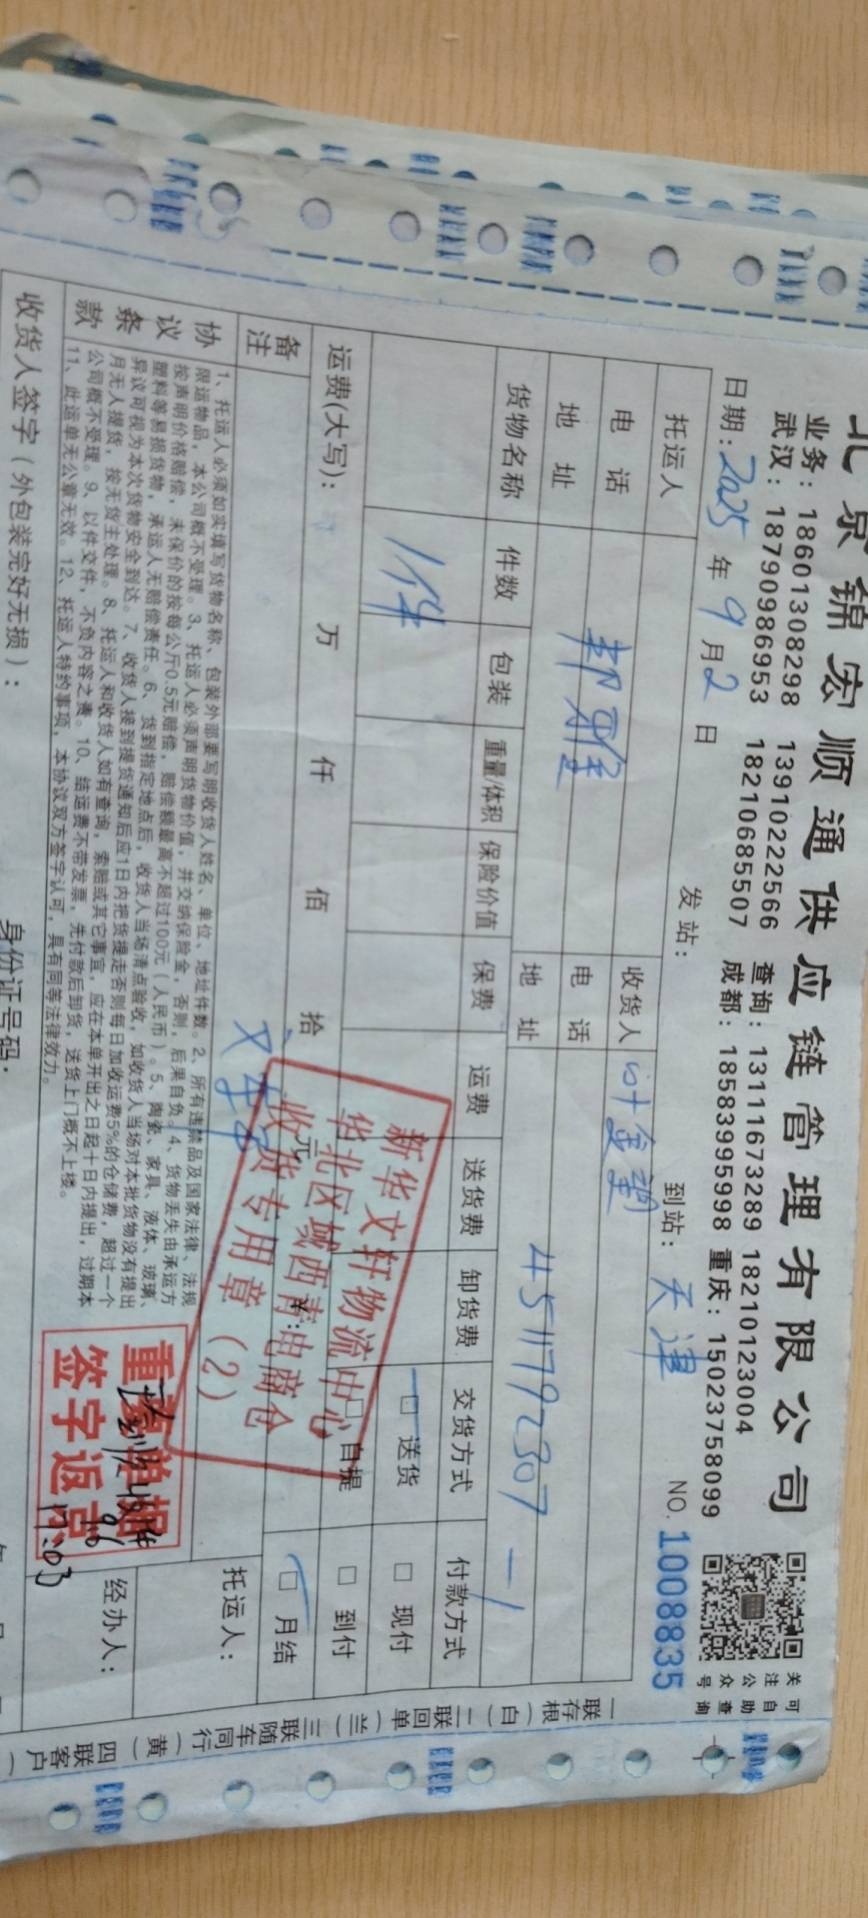 北京锦宏顺通供应链管理有限公司
业务：18601308298 13910222566 查询：13111673289 18210123004
武汉：18790986953 18210685507 成都：18583995998 重庆：15023758099
关注公众号
可自助查询
日期：2025年9月2日 发站： 到站：天津 NO. 1008835
托运人 收货人
电话 电话
地址 地址 4511792307 一1
货物名称 件数 包装 重量/体积 保险价值 保费 运费 送货费 卸货费 交货方式 付款方式
1件 □ 送货 □ 现付
□ 自提 □ 到付
运费(大写)： 万 仟 佰 拾 元 ¥： □ 月结
备注
新华文轩物流中心
华北区域西青电商仓
收货专用章（2）
协议条款
1、托运人必须如实填写货物名称、包装外部要写明收货人姓名、单位、地址件数。2、所有违禁品及国家法律、法规
限运物品，本公司概不受理。3、托运人必须声明货物价值，并交纳保险金，否则，后果自负。4、货物丢失由承运方
按声明价格赔偿，未保价的按每公斤0.5元赔偿，赔偿额最高不超过100元（人民币）。5、陶瓷、家具、液体、玻璃、
塑料等易损货物，承运人无赔偿责任。6、货到指定地点后，收货人当场清点验收，如收货人当场对本批货物没有提出
异议可视为本次货物安全到达。7、收货人接到提货通知后应1日内把货提走否则每日加收运费5%的仓储费，超过一个
月无人提货，按无货主处理。8、托运人和收货人如有查询，索赔或其它事宜，应在本单开出之日起十日内提出，过期本
公司概不受理。9、以件交件，不负内容之责。10、结运费不带发票，先付款后卸货，送货上门概不上楼。
11、此运单无公章无效。12、托运人特约事项，本协议双方签字认可，具有同等法律效力。
托运人：
重要单据
签字返京
9.6
17:03
经办人：
收货人签字（外包装完好无损）：
身份证号码：
一联存根（白）二联回单（兰）三联随车同行（黄）四联客户